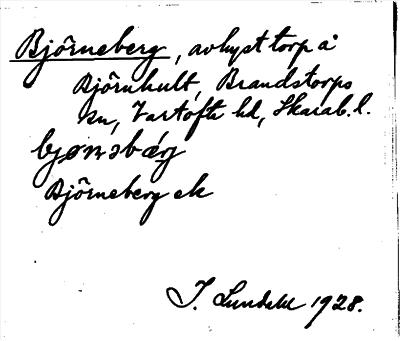 Björneberg, avhyst torp å
Björnhult, Brandstorps
sn, Vartofta hd, Skarab. l.
bjø̄nəbárj
Björneberg ek
J. Lundahl 1928.